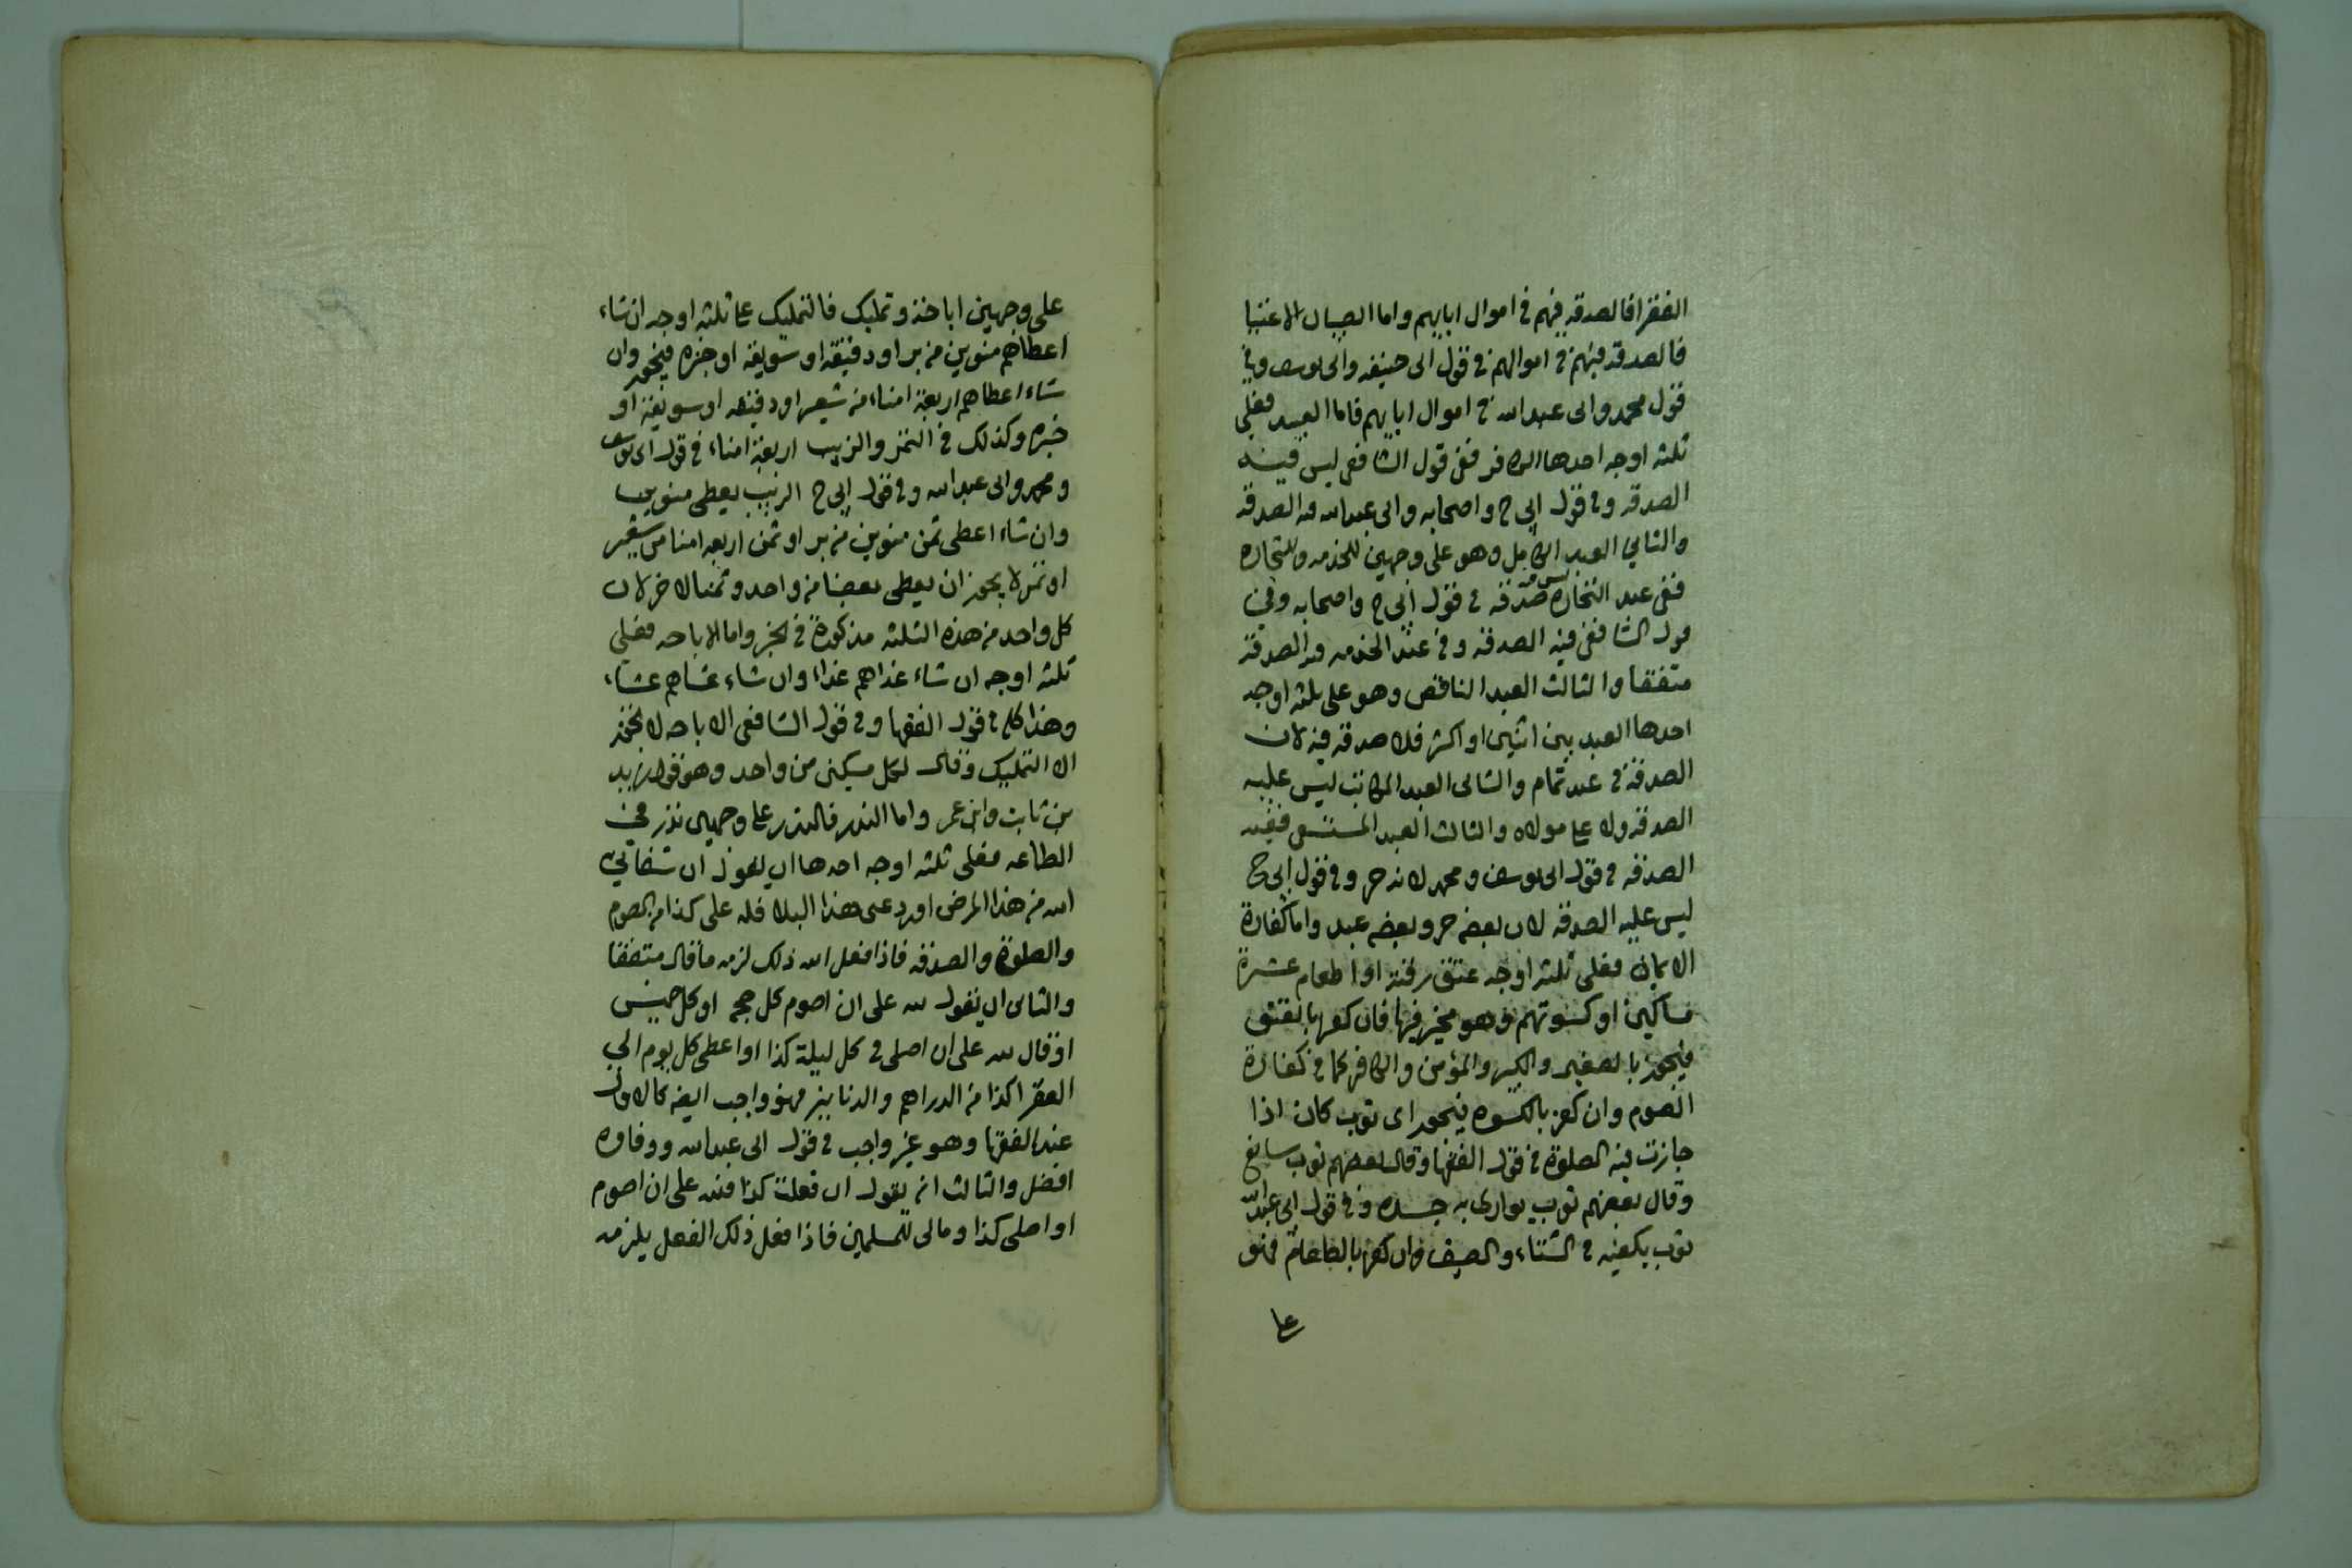 الفقرا فالصدقه فيهم في اموال ابايهم واما الصبيان الاغنيا
فالصدقه فيهم في اموالهم في قول ابى حنيفه وابى يوسف وفي
قول محمد وابى عبدالله في اموال ابايهم فاما العبيد فعلي
ثلثه اوجه احدها الكافر ففي قول الشافعي ليس فيه
الصدقه وفي قول ابي ح واصحابه وابى عبدالله فيه الصدقه
والثاني العبد الكامل وهو على وجهين للخدمه وللتجاره
ففي عبد التجاره ليس فيه صدقه في قول ابي ح واصحابه وفي
قول الشافعي فيه الصدقه وفي عبد الخدمه فيه الصدقة
متفقا والثالث العبد الناقص وهو على ثلثه اوجه
احدها العبد بين اثنين او اكثر فلا صدقه فيه لان
الصدقة في عبد تمام والثانى العبد المكاتب ليس عليه
الصدقه ولا على مولاه والثالث العبد المستسعى ففيه
الصدقه في قول ابى يوسف ومحمد لانه حر وفي قول ابي ح
ليس عليه الصدقه لان بعضه حر وبعضه عبد واما كفارة
الايمان فعلى ثلثه اوجه عتق رقبة او اطعام عشرة
مساكين او كسوتهم وهو مخير فيها فان كفر بالعتق
فيجوز بالصغير والكبير والمؤمن والكافر كما في كفارة
الصوم وان كفر بالكسوه فيجوز اى ثوب كان اذا
جازت فيه الصلوة في قول الفقها وقال بعضهم ثوب سابغ
وقال بعضهم ثوب يوارى به جسده وفي قول ابى عبدالله
ثوب يكفيه في الشتاء والصيف وان كفر بالطاعام فهو
على
على وجهين اباحة وتمليك فالتمليك على ثلثه اوجه ان شاء
اعطاهم منوين من بر او دقيقه او سويقه او خبزه فيجوز وان
شاء اعطاهم اربعة امناء من شعير او دقيقه او سويقه او
خبزه وكذلك في التمر والزبيب اربعة امناء في قول ابى يوسف
ومحمد وابى عبدالله وفي قول ابى ح الزبيب يعطى منوين
وان شاء اعطى ثمن منوين من بر او ثمن اربعه امنا من شعير
او تمر لا يجوز ان يعطى بعضا من واحد وثمنا لاخر لان
كل واحد من هذه الثلثه مذكورة في الخبر واما الاباحه فعلى
ثلثه اوجه ان شاء غذاهم غذاء وان شاء عشاهم عشاء
وهذا كله في قول الفقها وفي قول الشافعى الاباحه لا تجوز
الا التمليك وقال لكل مسكين من واحد وهو قول زيد
بن ثابت وابن عمر واما النذر فالنذر على وجهين نذر في
الطاعه فعلى ثلثه اوجه احدها ان يقول ان شفاني
الله من هذا المرض او رد عنى هذا البلا فله على كذا من الصوم
والصلوة والصدقه فاذا فعل الله ذلك لزمه ما قال متفقا
والثانى ان يقول لله على ان اصوم كل جمعه او كل خميس
او قال لله على ان اصلى في كل ليلة كذا او اعطى كل يوم الي
الفقرا كذا من الدراهم والدنانير فهو واجب ايضا كالاول
عند الفقها وهو غير واجب في قول ابى عبدالله ووفاوه
افضل والثالث انه يقول ان فعلت كذا فلله على ان اصوم
او اصلى كذا ومالى للمسلمين فاذا فعل ذلك الفعل يلزمه